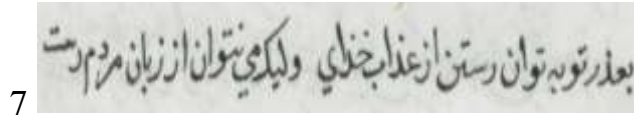 بعذر توبه توان رستن از عذاب خدای ولیک می نتوان از زبان مردم رست
7